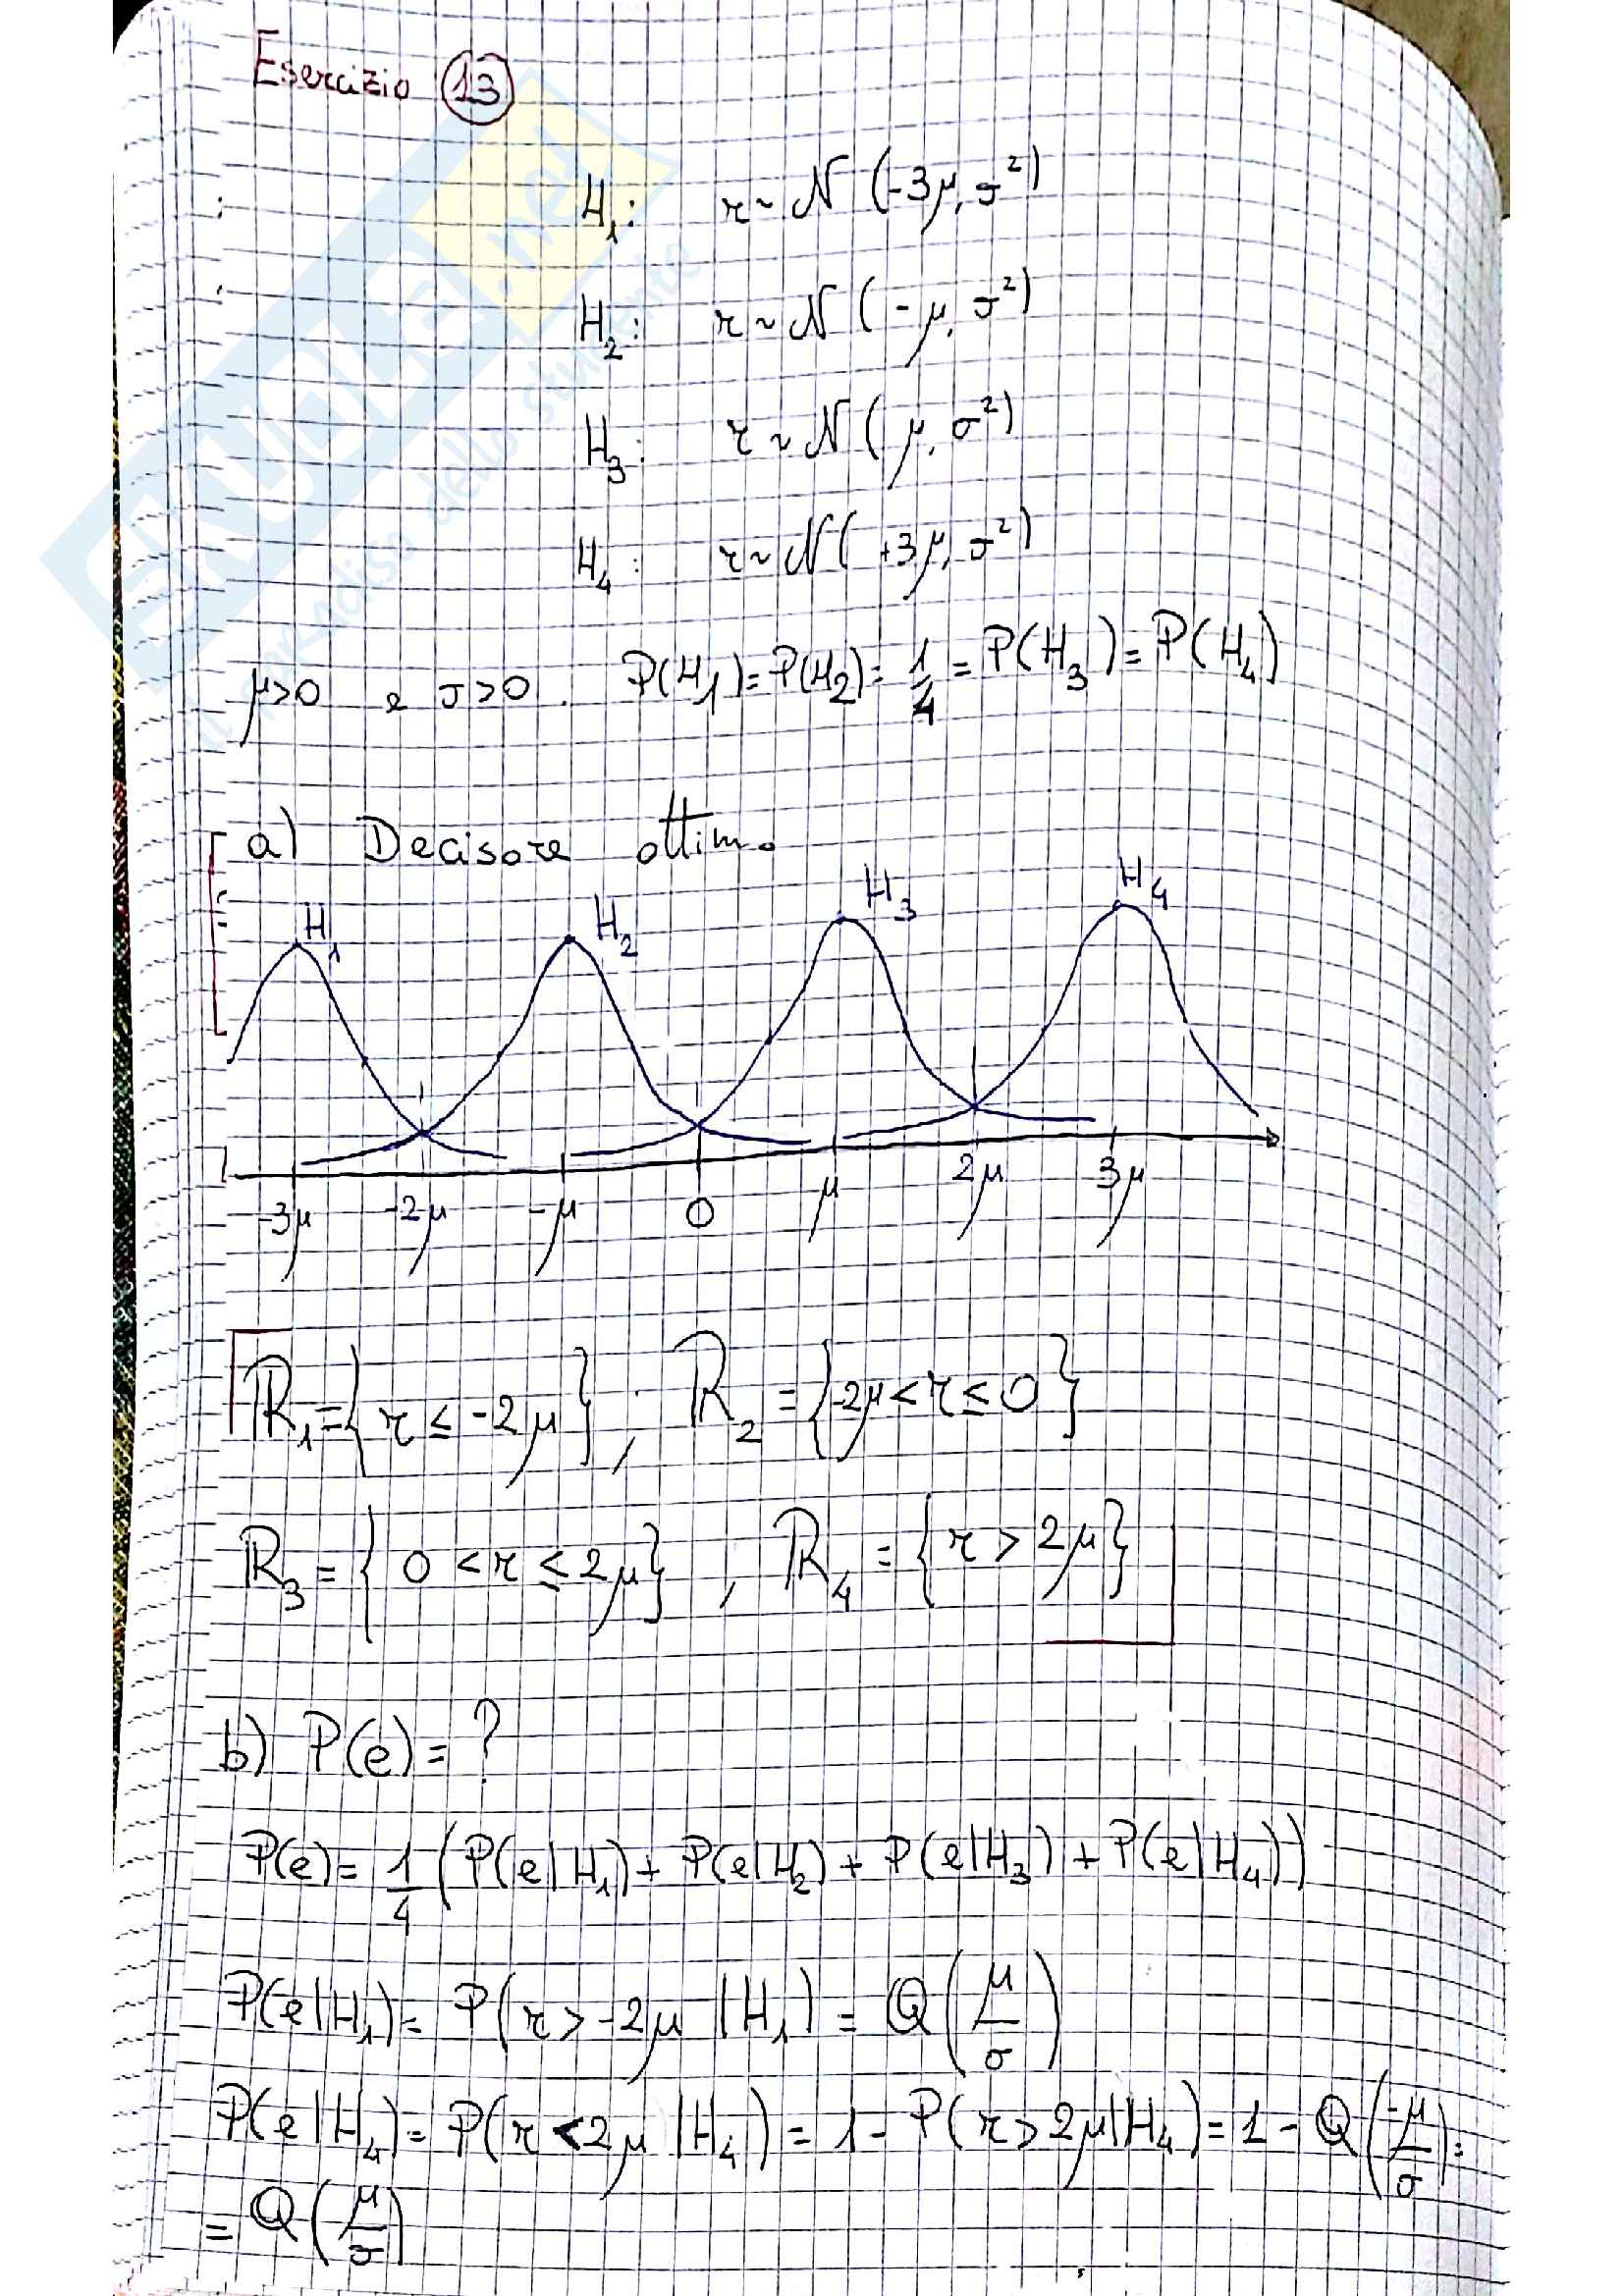 Esercizio 13
H₁: r ~ N (-3μ, σ²)
H₂: r ~ N (-μ, σ²)
H₃: r ~ N (μ, σ²)
H₄: r ~ N (+3μ, σ²)
μ>0 e σ>0. P(H₁)=P(H₂)= 1/4 = P(H₃)= P(H₄)
a) Decisore ottimo
H₁ H₂ H₃ H₄
-3μ -2μ -μ 0 μ 2μ 3μ
R₁={r ≤ -2μ}, R₂={-2μ<r≤0}
R₃={0<r≤2μ}, R₄={r>2μ}
b) P(e)=?
P(e)= 1/4 (P(e|H₁)+ P(e|H₂)+ P(e|H₃)+ P(e|H₄))
P(e|H₁)= P(r>-2μ |H₁) = Q(μ/σ)
P(e|H₄)= P(r<2μ |H₄) = 1- P(r>2μ|H₄)= 1 - Q(-μ/σ)=
= Q(μ/σ)
SKUOLA.net
il paradiso dello studente